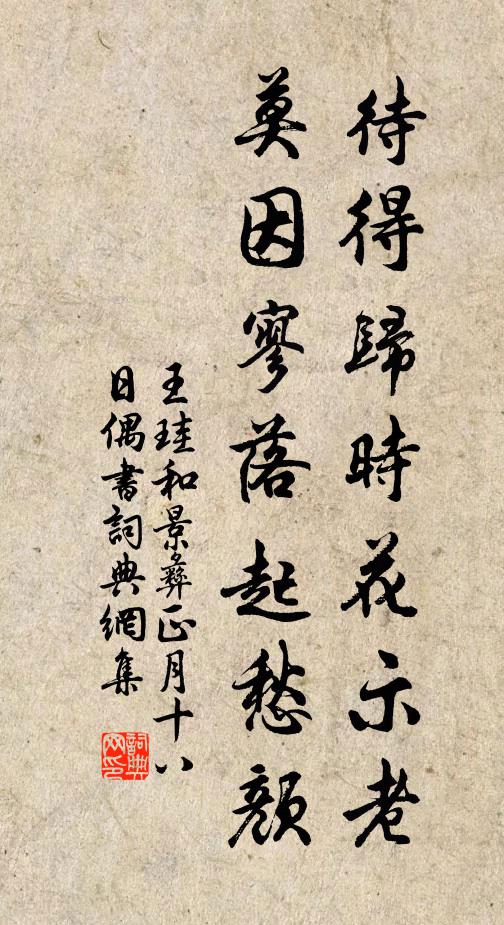 待得歸時花示老
莫因寥落起愁顏
王珪和景彝正月十八
日偶書詞典網集
詞典網印